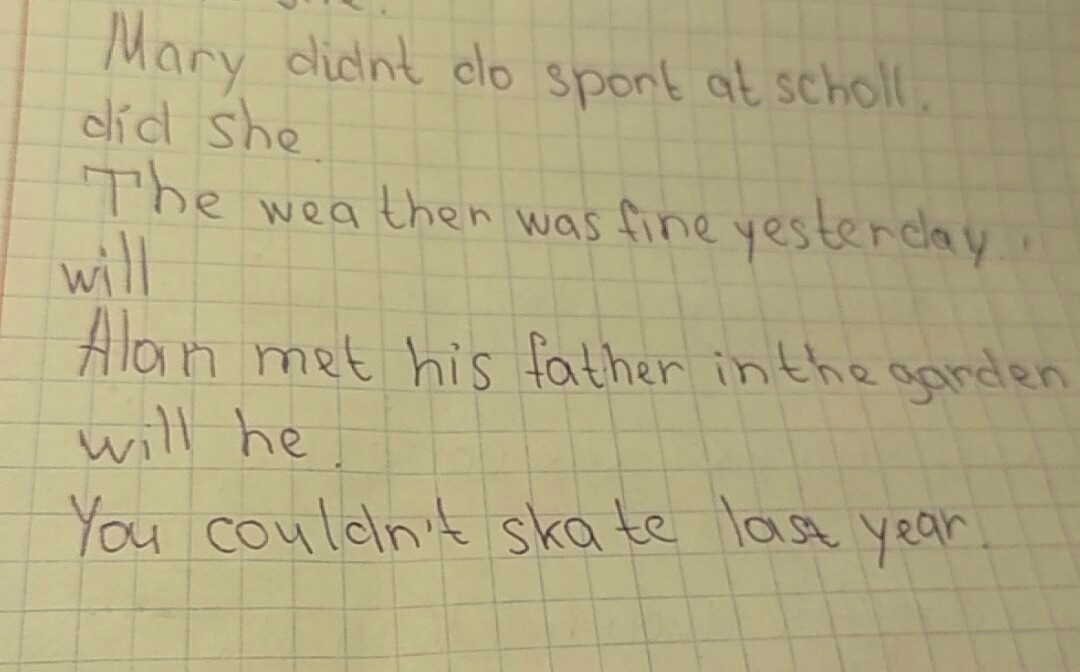 Mary didnt do sport at scholl.
did she.
The weather was fine yesterday.
will
Alan met his father in the garden
will he.
You couldn't skate last year.